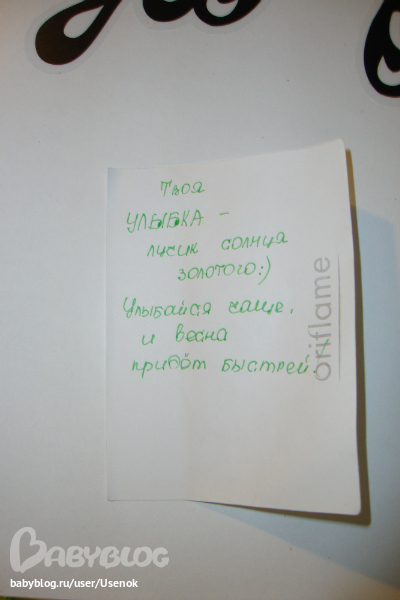 Твоя
УЛЫБКА –
лусик солнца
золотого:)
Улыбайся чаще,
и весна
придёт быстрей.
oriflame
BABYBLOG
babyblog.ru/user/Usenok